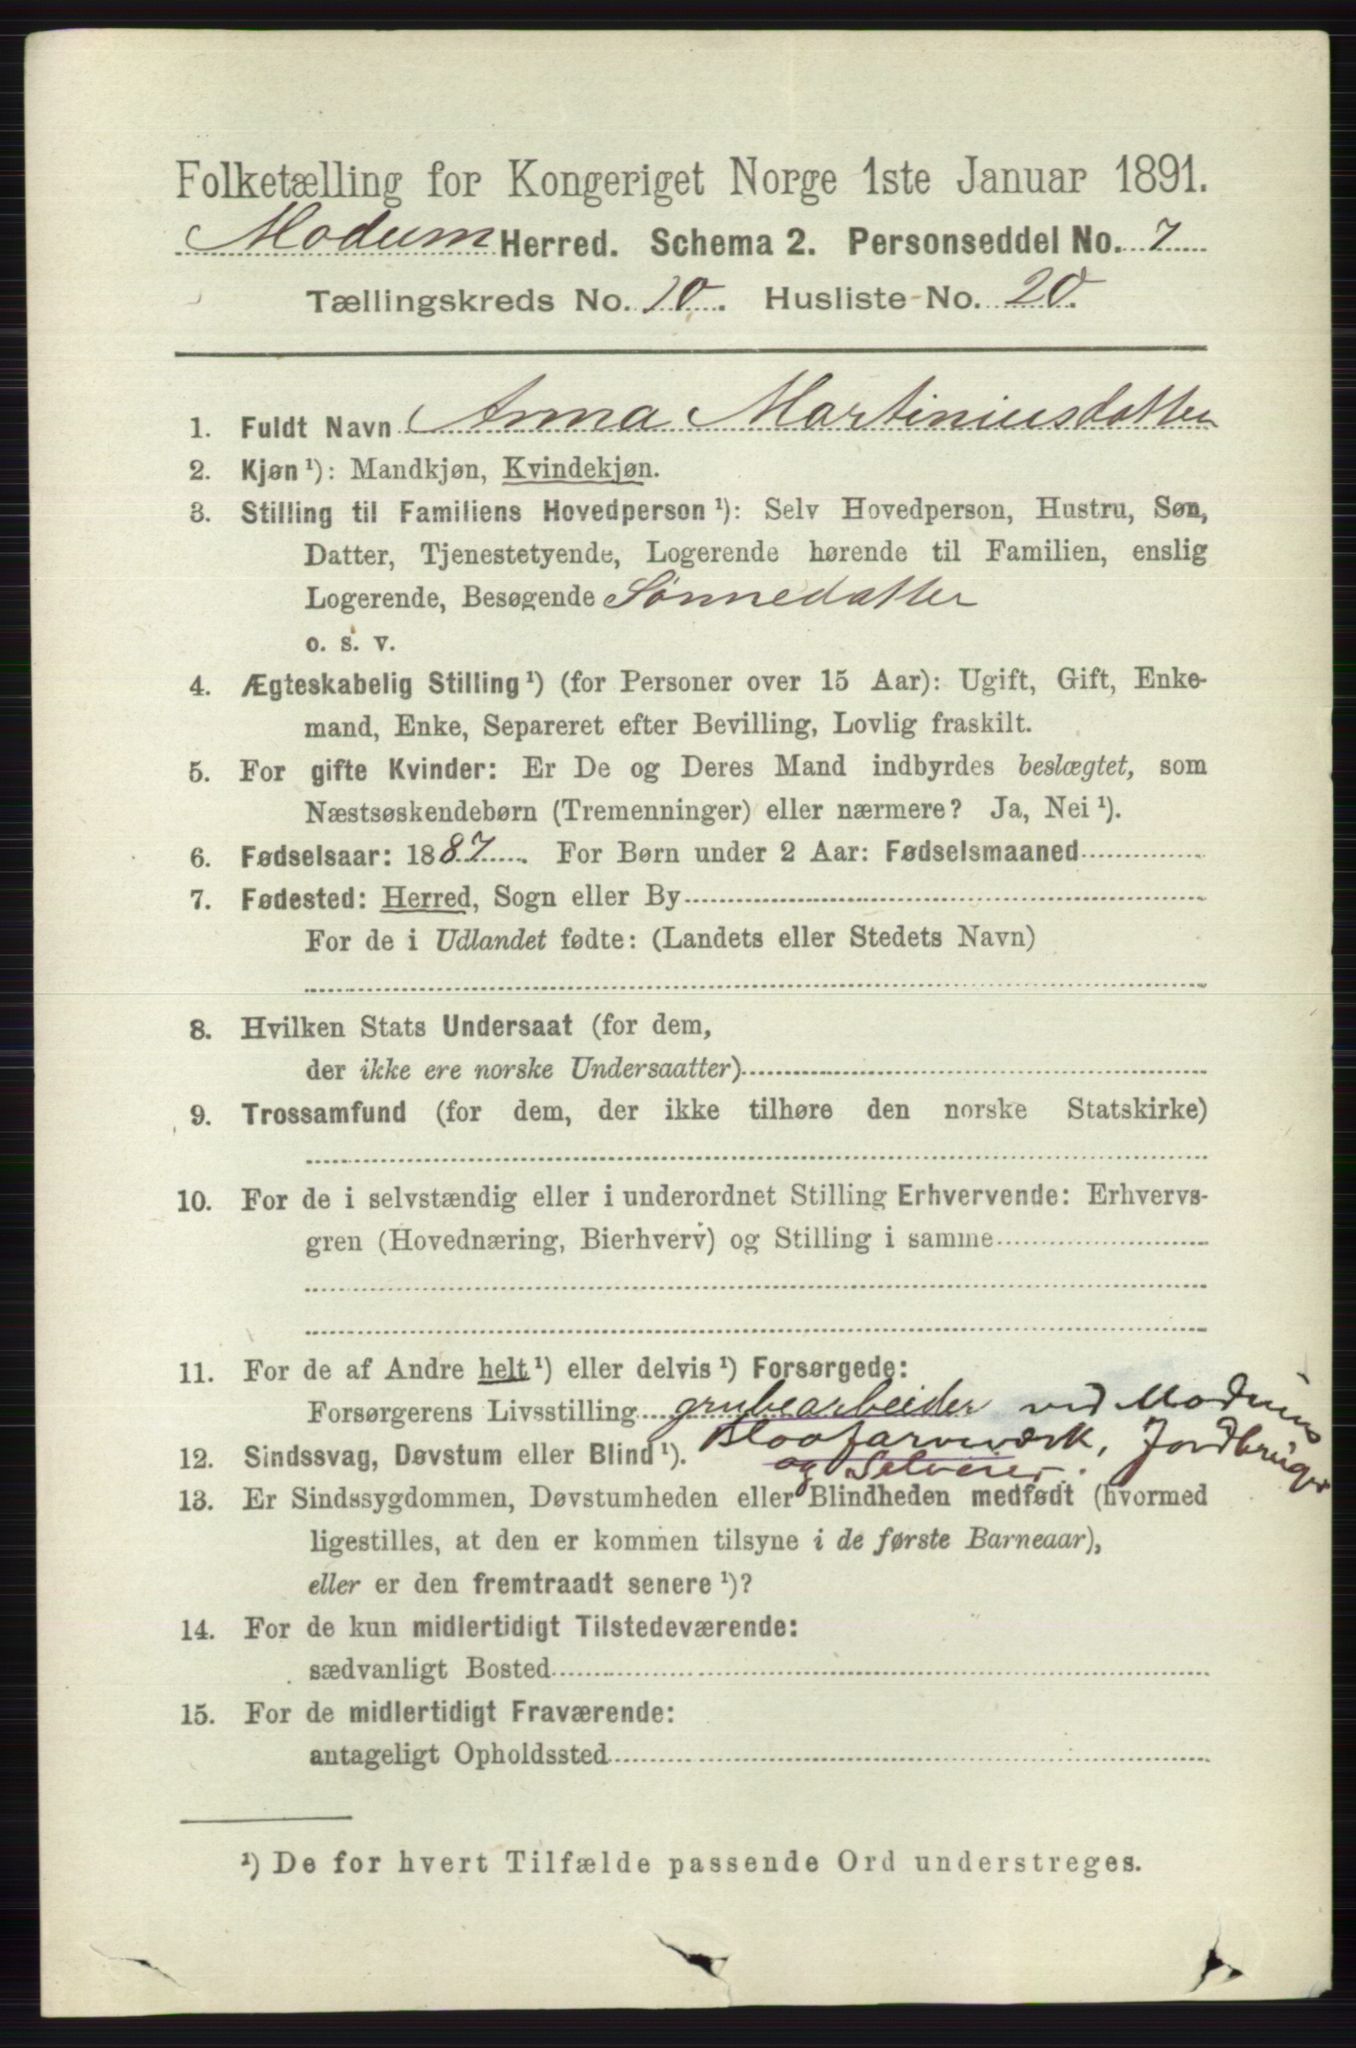 Folketælling for Kongeriget Norge 1ste Januar 1891.
Modum Herred. Schema 2. Personseddel No. 7
Tællingskreds No. 10. Husliste No. 20.
1. Fuldt Navn Anna Martiniusdatter
2. Kjøn ¹): Mandkjøn, Kvindekjøn.
3. Stilling til Familiens Hovedperson ¹): Selv Hovedperson, Hustru, Søn,
Datter, Tjenestetyende, Logerende hørende til Familien, enslig
Logerende, Besøgende Sønnedatter
o. s. v.
4. Ægteskabelig Stilling ¹) (for Personer over 15 Aar): Ugift, Gift, Enke-
mand, Enke, Separeret efter Bevilling, Lovlig fraskilt.
5. For gifte Kvinder: Er De og Deres Mand indbyrdes beslægtet, som
Næstsøskendebørn (Tremenninger) eller nærmere? Ja, Nei ¹).
6. Fødselsaar: 1887. For Børn under 2 Aar: Fødselsmaaned
7. Fødested: Herred, Sogn eller By
For de i Udlandet fødte: (Landets eller Stedets Navn)
8. Hvilken Stats Undersaat (for dem,
der ikke ere norske Undersaatter)
9. Trossamfund (for dem, der ikke tilhøre den norske Statskirke)
10. For de i selvstændig eller i underordnet Stilling Erhvervende: Erhvervs-
gren (Hovednæring, Bierhverv) og Stilling i samme
11. For de af Andre helt ¹) eller delvis ¹) Forsørgede:
Forsørgerens Livsstilling grubearbeider ved Modums
Blaafarveværk, Jordbruger
12. Sindssvag, Døvstum eller Blind ¹).
og Selveier.
13. Er Sindssygdommen, Døvstumheden eller Blindheden medfødt (hvormed
ligestilles, at den er kommen tilsyne i de første Barneaar),
eller er den fremtraadt senere ¹)?
14. For de kun midlertidigt Tilstedeværende:
sædvanligt Bosted
15. For de midlertidigt Fraværende:
antageligt Opholdssted
¹) De for hvert Tilfælde passende Ord understreges.